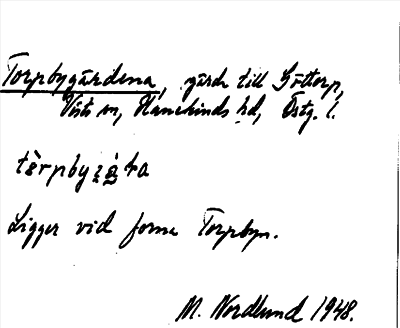 Torpbygärdena, gårdr till Göttorp,
Vists sn, Hanekinds hd, Östg. l.
Ligger vid forna Torpbyn.
M. Nordlund 1948.